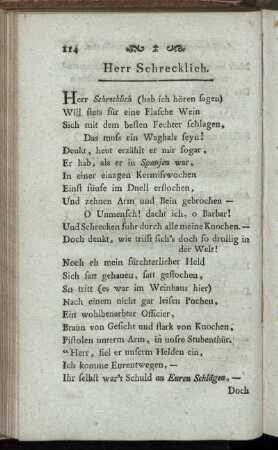 114
Herr Schrecklich.
Herr Schrecklich (hab ich hören sagen)
Will stets für eine Flasche Wein
Sich mit dem besten Fechter schlagen,
Das muss ein Waghals seyn!
Denkt, heut erzählt er mir sogar,
Er hab, als er in Spanien war,
In einer einzgen Kermisswochen
Einst fünfe im Duell erstochen,
Und zehnen Arm und Bein gebrochen —
O Unmensch! dacht ich, o Barbar!
Und Schrecken fuhr durch alle meine Knochen. —
Doch denkt, wie trifft sich's doch so drollig in
der Welt!
Noch eh mein fürchterlicher Held
Sich satt gehauen, satt gestochen,
So tritt (es war im Weinhaus hier)
Nach einem nicht gar leisen Pochen,
Ein wohlbenarbter Officier,
Braun von Gesicht und stark von Knochen,
Pistolen unterm Arm, in unsre Stubenthür.
"Herr, fiel er unserm Helden ein,
Ich komme Eurentwegen, —
Ihr selbst war't Schuld an Euren Schlägen, —
Doch